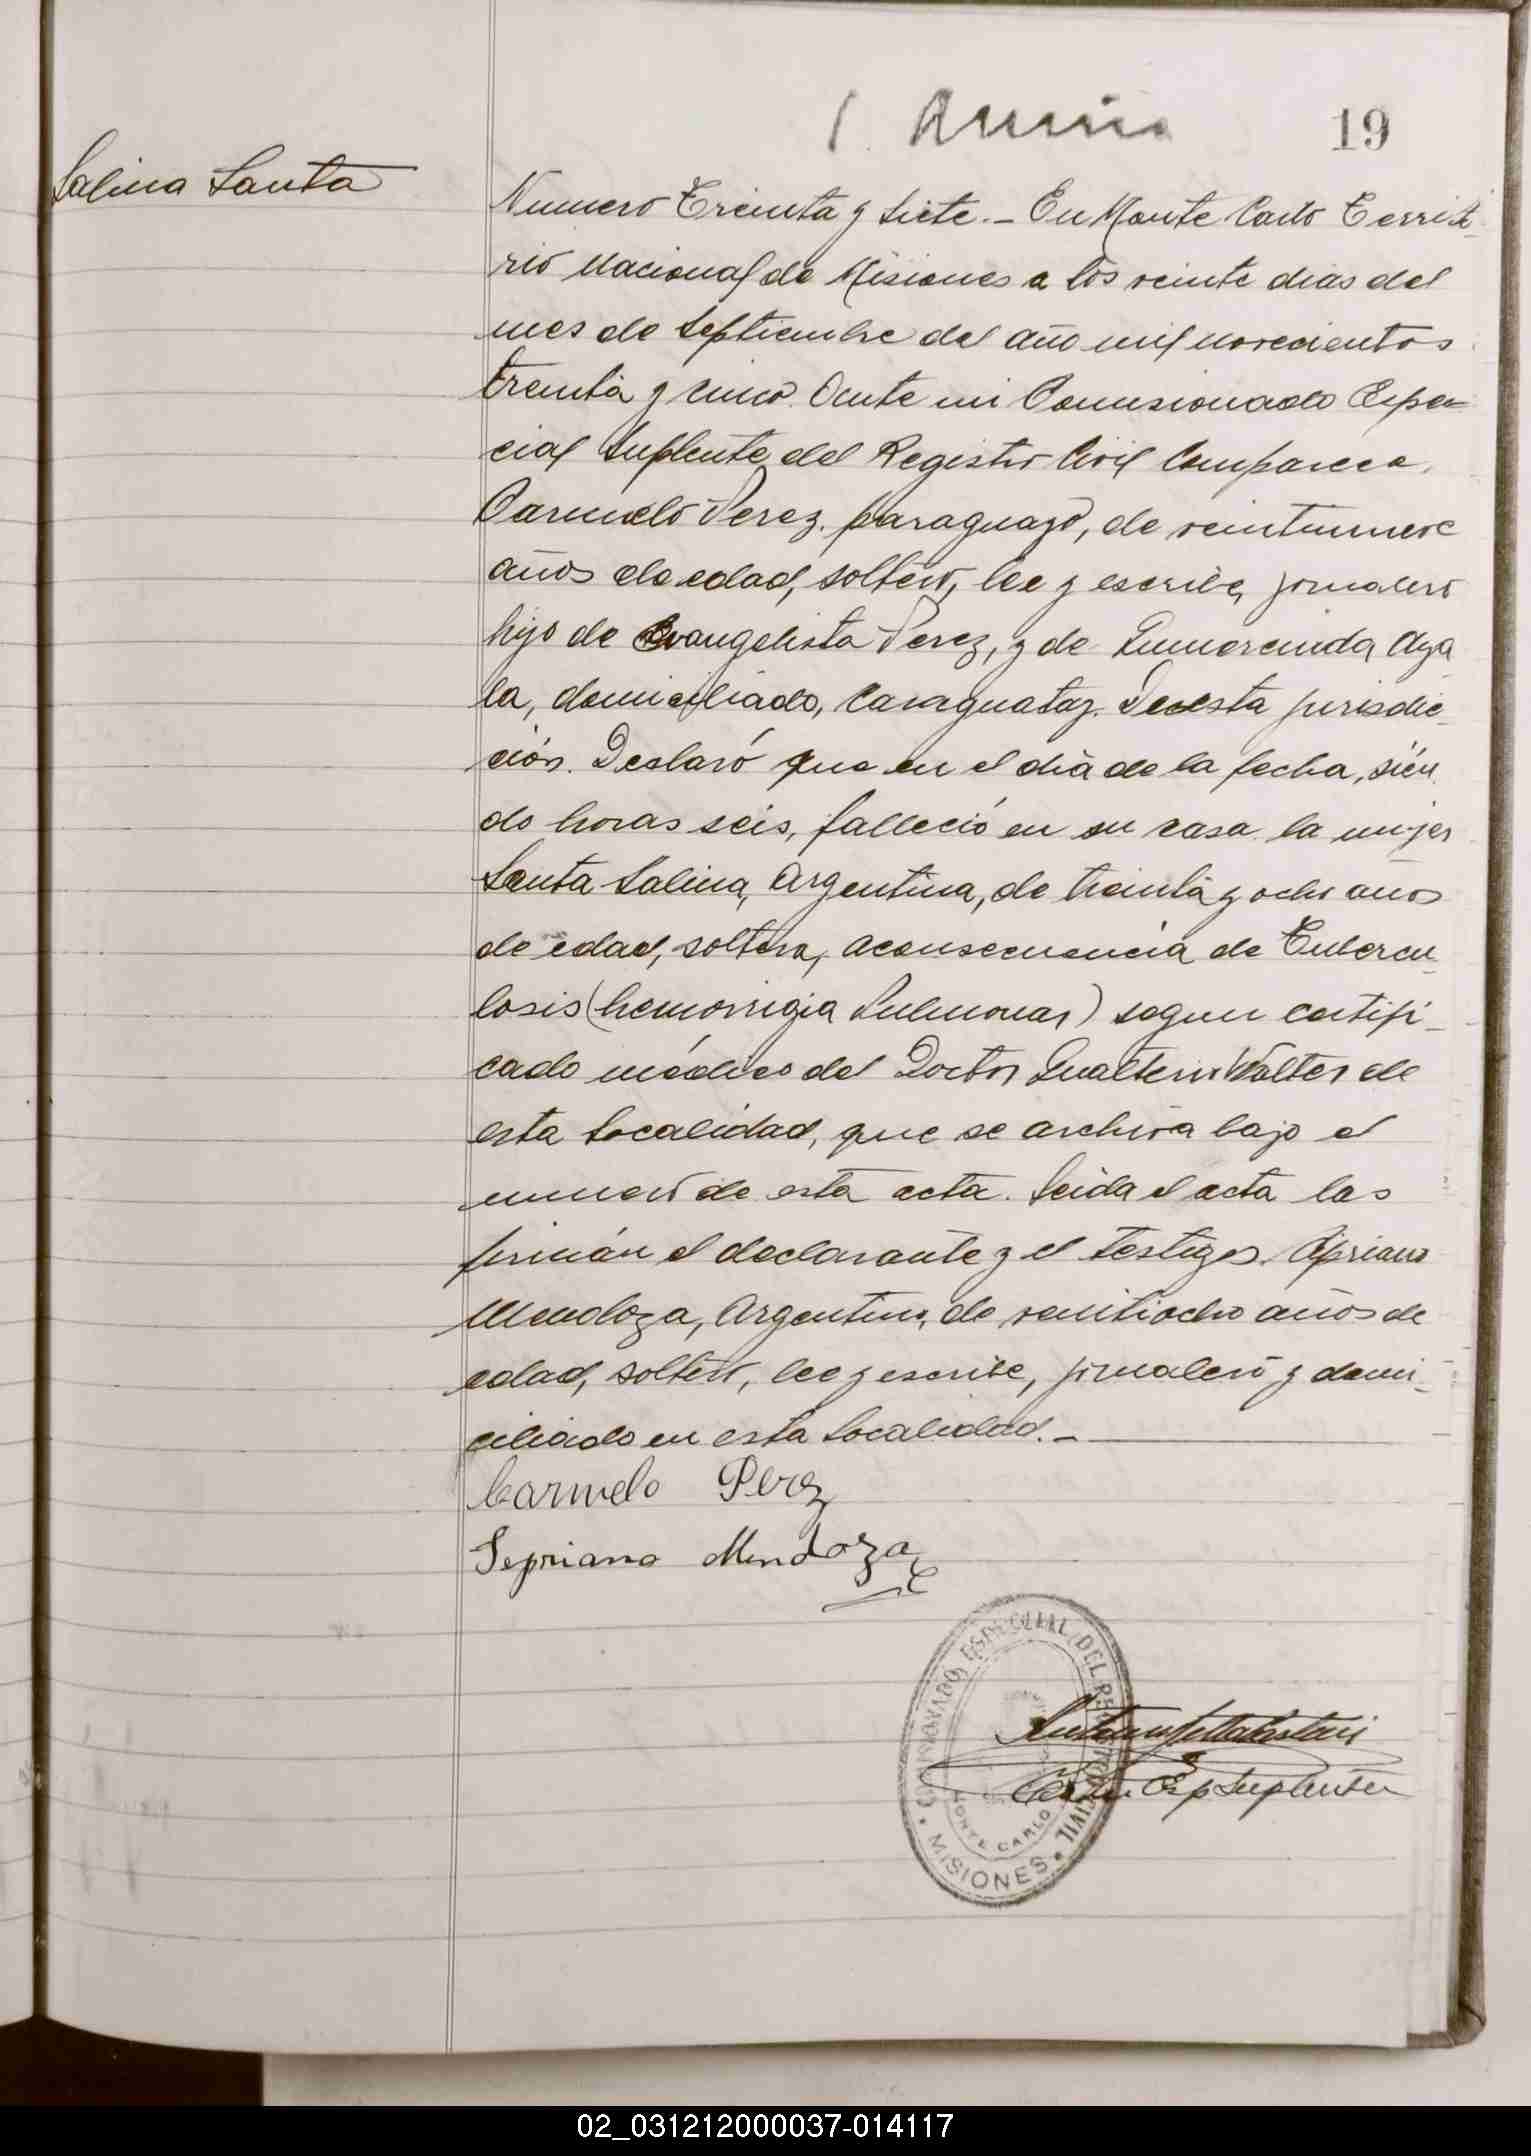 19
Salina Santa
Numero Treinta y siete._ En Monte Carlo Territo-
rio Nacional de Misiones a los veinte dias del
mes de Septiembre del año mil novecientos
treinta y cinco. Ante mi Comisionado Espe-
cial Suplente del Registro Civil Comparece,
Carmelo Perez. paraguayo, de veintinueve
años de edad, soltero, lee y escribe, jornalero
hijo de Evangelista Perez, y de Gumercinda Aya
la, domiciliado, Caraguatay. De esta jurisdic-
ción. Declaró que en el dia de la fecha, sien
do horas seis, falleció en su casa la mujer
Santa Salina, Argentina, de treinta y ocho años
de edad, soltera, aconsecuencia de Tubercu_
losis (hemorrigia Pulmonar) segun certifi_
cado médico del Doctor Gualterio Walter de
esta localidad, que se archiva bajo el
numero de esta acta. Leida el acta las
firmán el declarante y el testigos. Cipriano
Mendoza, Argentino, de veintiocho años de
edad, soltero, lee y escribe, jornalero y domi_
ciliado en esta localidad._
Carmelo Perez
Sepriano Mendoza
COMISIONADO ESPECIAL DEL REGISTRO CIVIL
MONTE CARLO
MISIONES
Esp Suplente
02_031212000037-014117